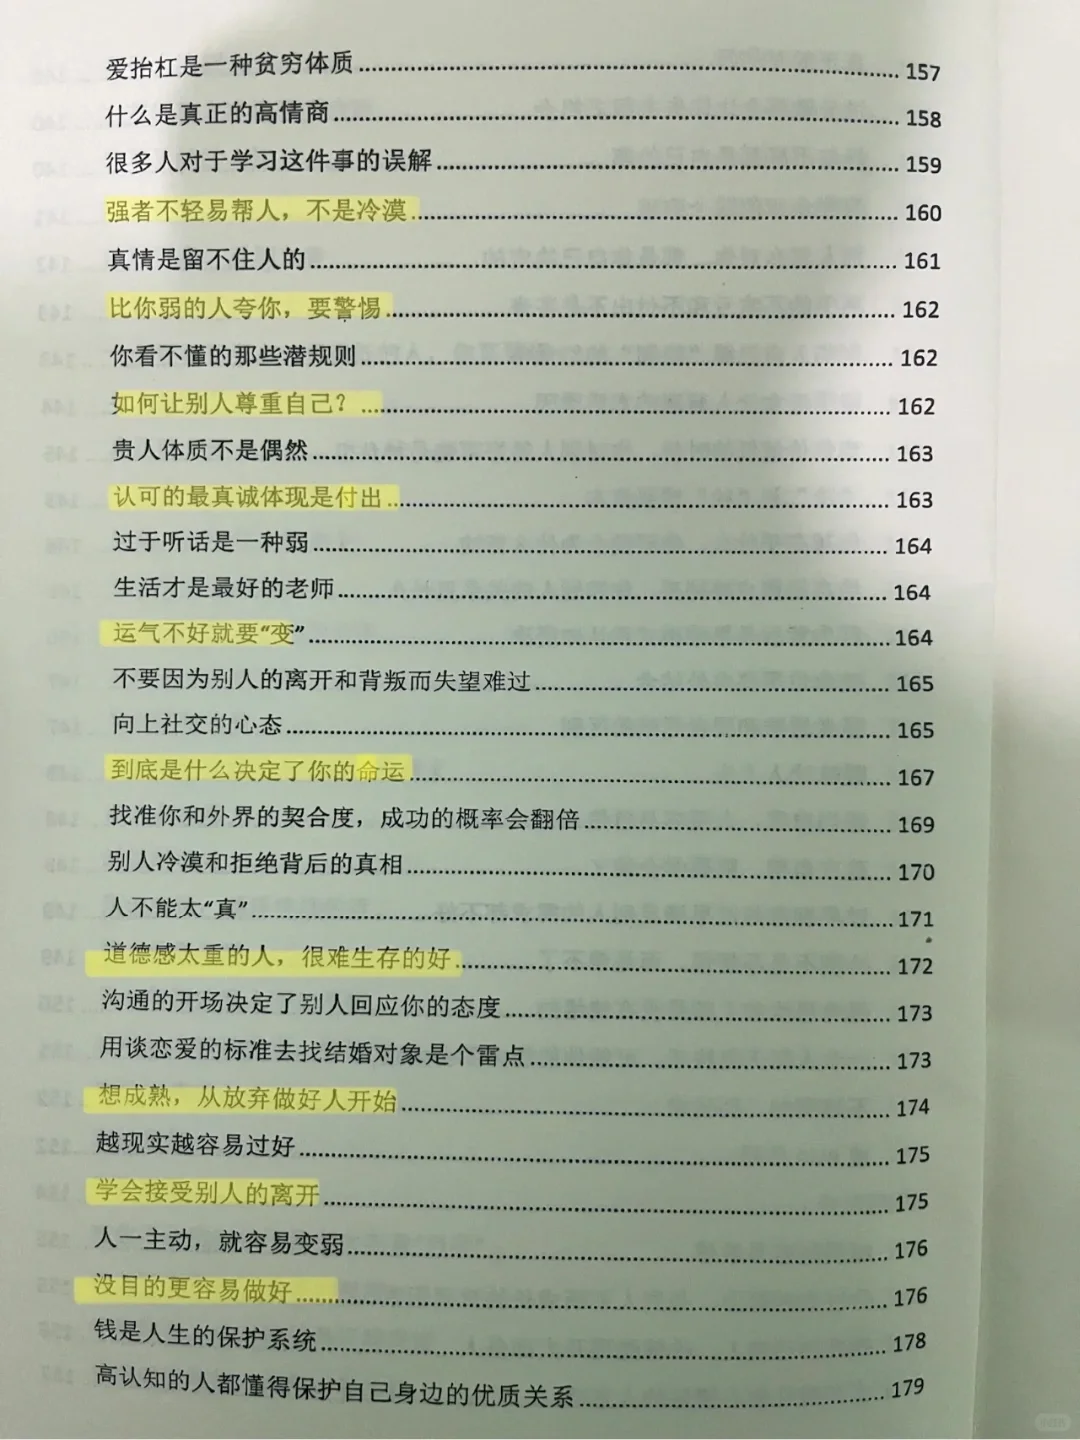 爱抬杠是一种贫穷体质 157
什么是真正的高情商 158
很多人对于学习这件事的误解 159
强者不轻易帮人，不是冷漠 160
真情是留不住人的 161
比你弱的人夸你，要警惕 162
你看不懂的那些潜规则 162
如何让别人尊重自己？ 162
贵人体质不是偶然 163
认可的最真诚体现是付出 163
过于听话是一种弱 164
生活才是最好的老师 164
运气不好就要“变” 164
不要因为别人的离开和背叛而失望难过 165
向上社交的心态 165
到底是什么决定了你的命运 167
找准你和外界的契合度，成功的概率会翻倍 169
别人冷漠和拒绝背后的真相 170
人不能太“真” 171
道德感太重的人，很难生存的好 172
沟通的开场决定了别人回应你的态度 173
用谈恋爱的标准去找结婚对象是个雷点 173
想成熟，从放弃做好人开始 174
越现实越容易过好 175
学会接受别人的离开 175
人一主动，就容易变弱 176
没目的更容易做好 176
钱是人生的保护系统 178
高认知的人都懂得保护自己身边的优质关系 179